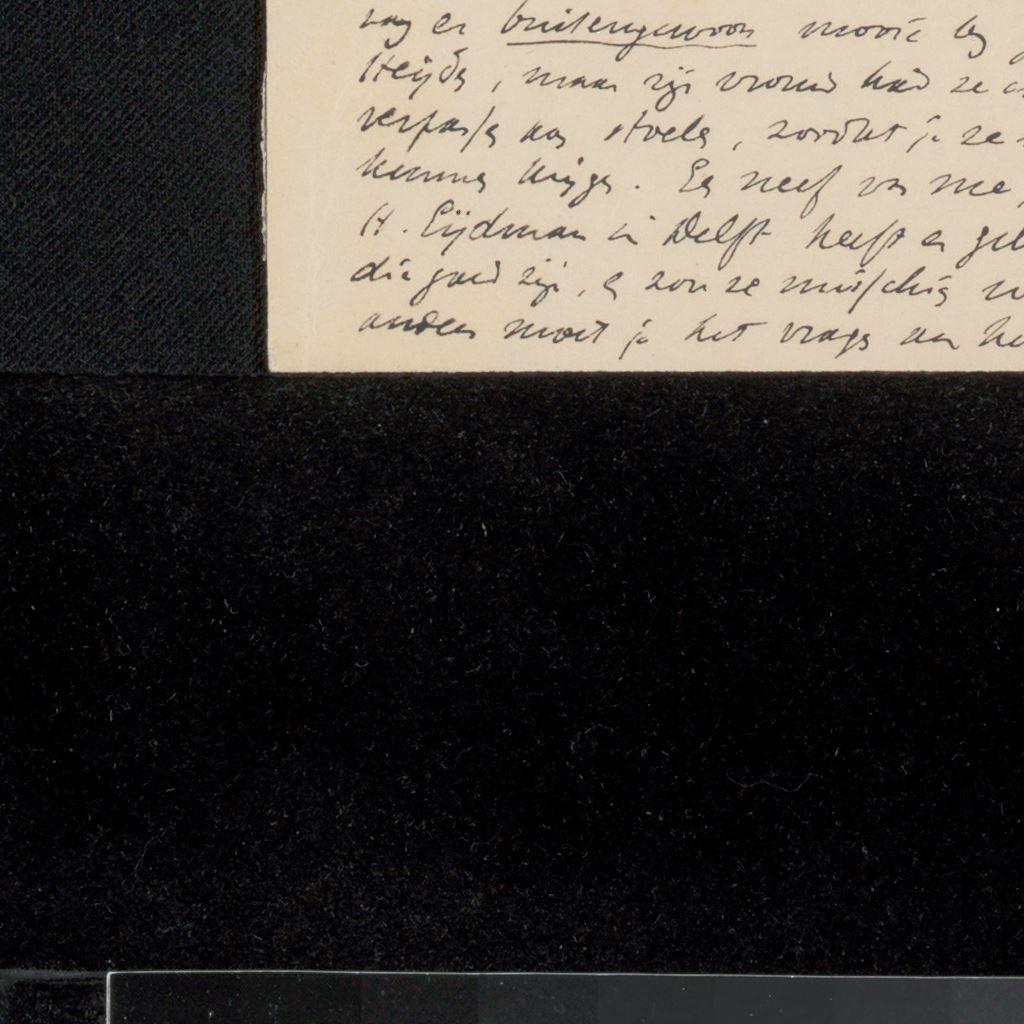 zag er buitengewoon mooie bij
Heijde, maar zijn vrouw had ze
aan stoele, zoodat je ze
kunne krijge. Een neef van me,
H. Eijdman in Delft heeft er
die goed zijn, en zou ze misschien
anders moet je het vrage aan